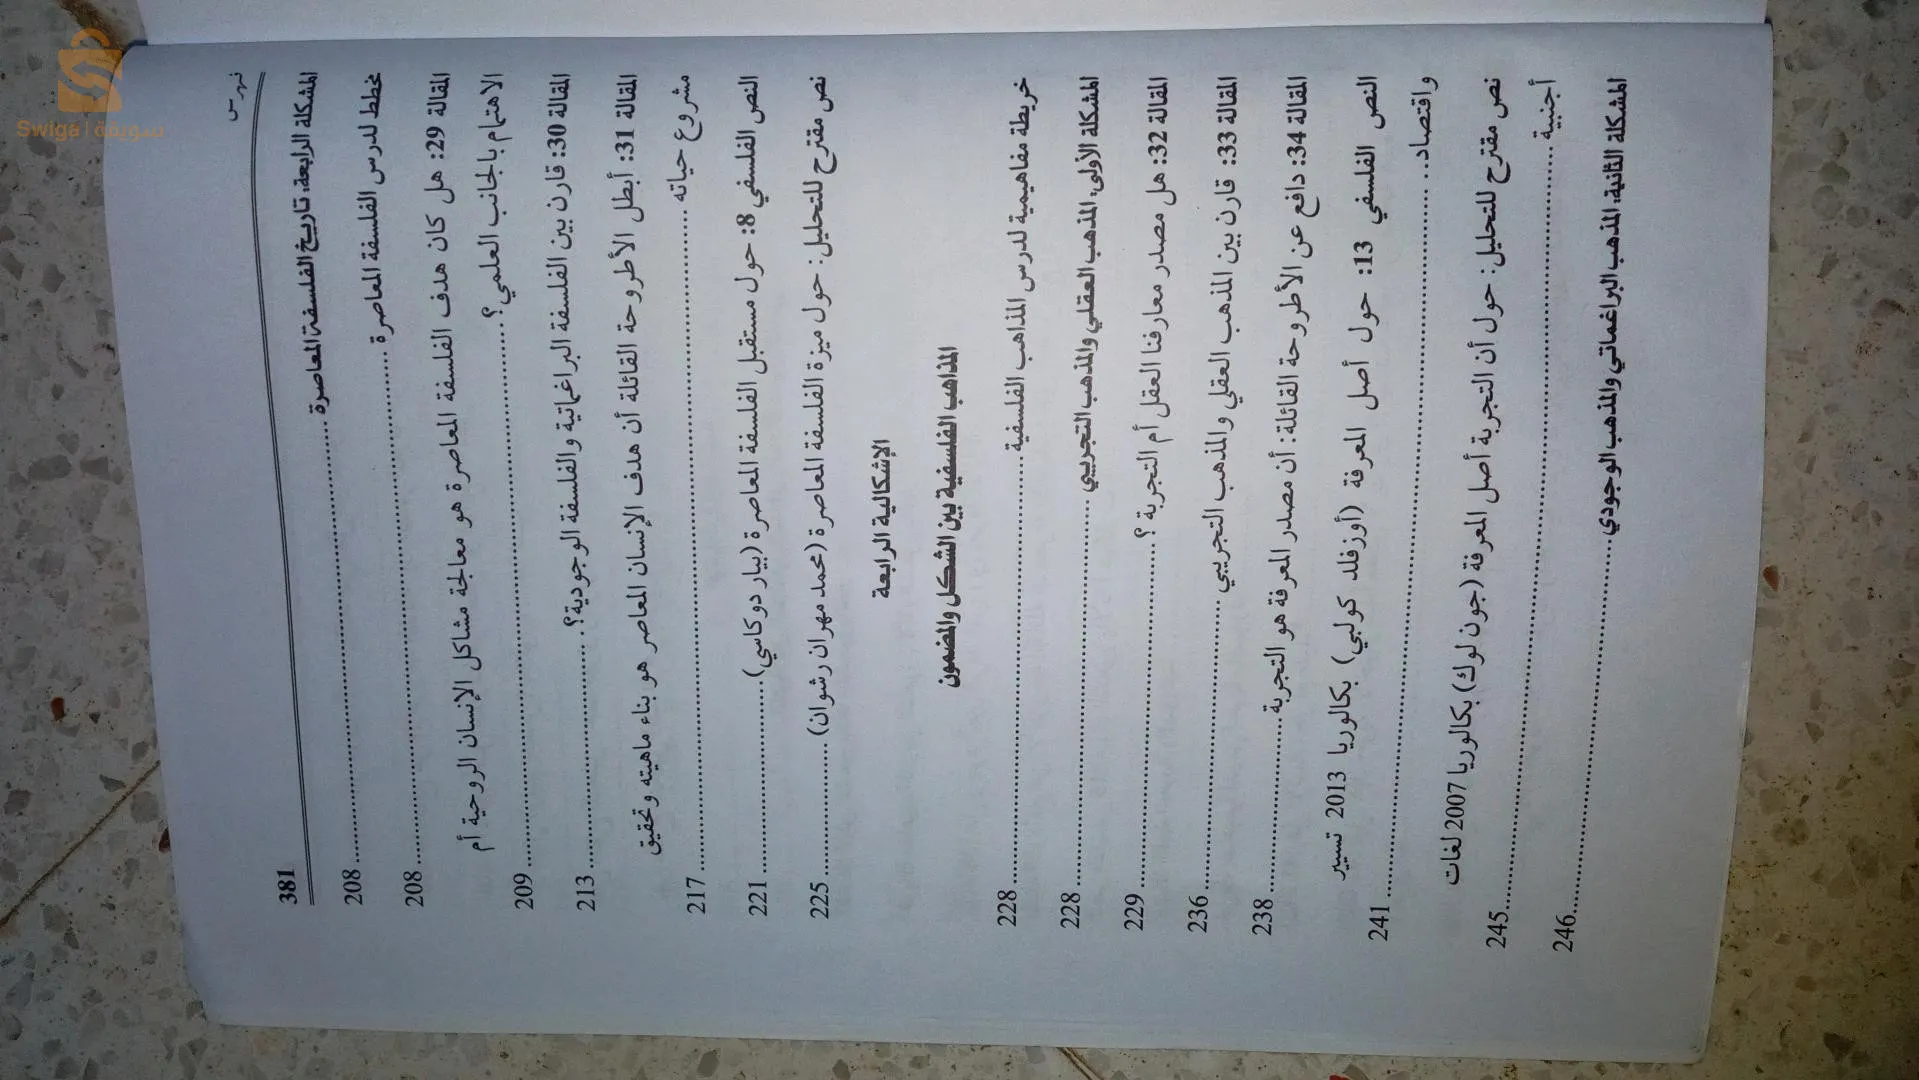 Swiga | سويقة
فهرس
381
المشكلة الرابعة: تاريخ الفلسفة المعاصرة ... 208
مخطط لدرس الفلسفة المعاصرة ... 208
المقالة 29: هل كان هدف الفلسفة المعاصرة هو معالجة مشاكل الإنسان الروحية أم
الاهتمام بالجانب العلمي؟ ... 209
المقالة 30: قارن بين الفلسفة البراغماتية والفلسفة الوجودية؟ ... 213
المقالة 31: أبطل الأطروحة القائلة أن هدف الإنسان المعاصر هو بناء ماهيته وتحقيق
مشروع حياته ... 217
النص الفلسفي 8: حول مستقبل الفلسفة المعاصرة (بيار دوكاسي) ... 221
نص مقترح للتحليل: حول ميزة الفلسفة المعاصرة (محمد مهران رشوان) ... 225
الإشكالية الرابعة
المذاهب الفلسفية بين الشكل والمضمون
خريطة مفاهيمية لدرس المذاهب الفلسفية ... 228
المشكلة الأولى: المذهب العقلي والمذهب التجريبي ... 228
المقالة 32: هل مصدر معارفنا العقل أم التجربة؟ ... 229
المقالة 33: قارن بين المذهب العقلي والمذهب التجريبي ... 236
المقالة 34: دافع عن الأطروحة القائلة: أن مصدر المعرفة هو التجربة ... 238
النص الفلسفي 13: حول أصل المعرفة (أوزفلد كولبي) بكالوريا 2013 تسيير
واقتصاد ... 241
نص مقترح للتحليل: حول أن التجربة أصل المعرفة (جون لوك) بكالوريا 2007 لغات
أجنبية ... 245
المشكلة الثانية: المذهب البراغماتي والمذهب الوجودي ... 246